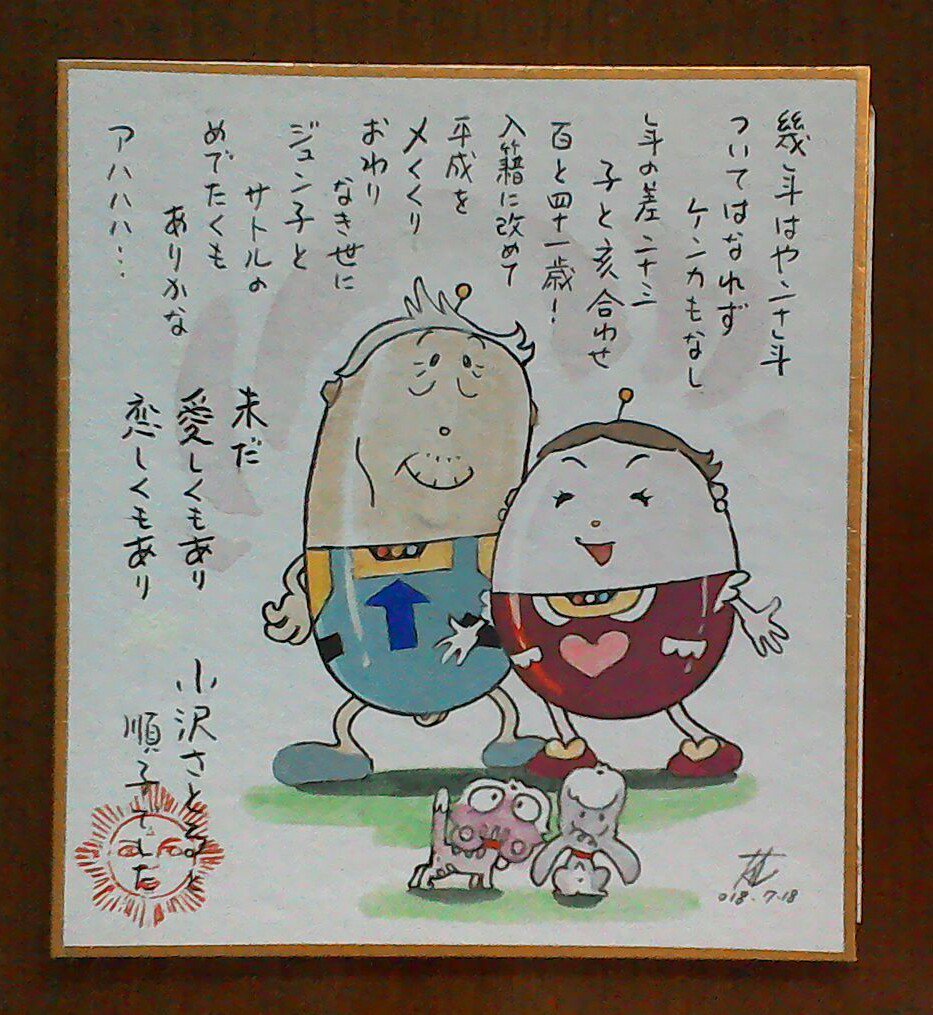 幾年はや二十年
ついてはなれず
ケンカもなし
年の差二十三
子と亥合わせ
百と四十一歳！
入籍に改めて
平成を
〆くくり
おわり
なき世に
ジュン子と
サトルの
めでたくも
ありかな
アハハハ…
未だ
愛しくもあり
恋しくもあり
小沢さとると
順子でした
018.7.18